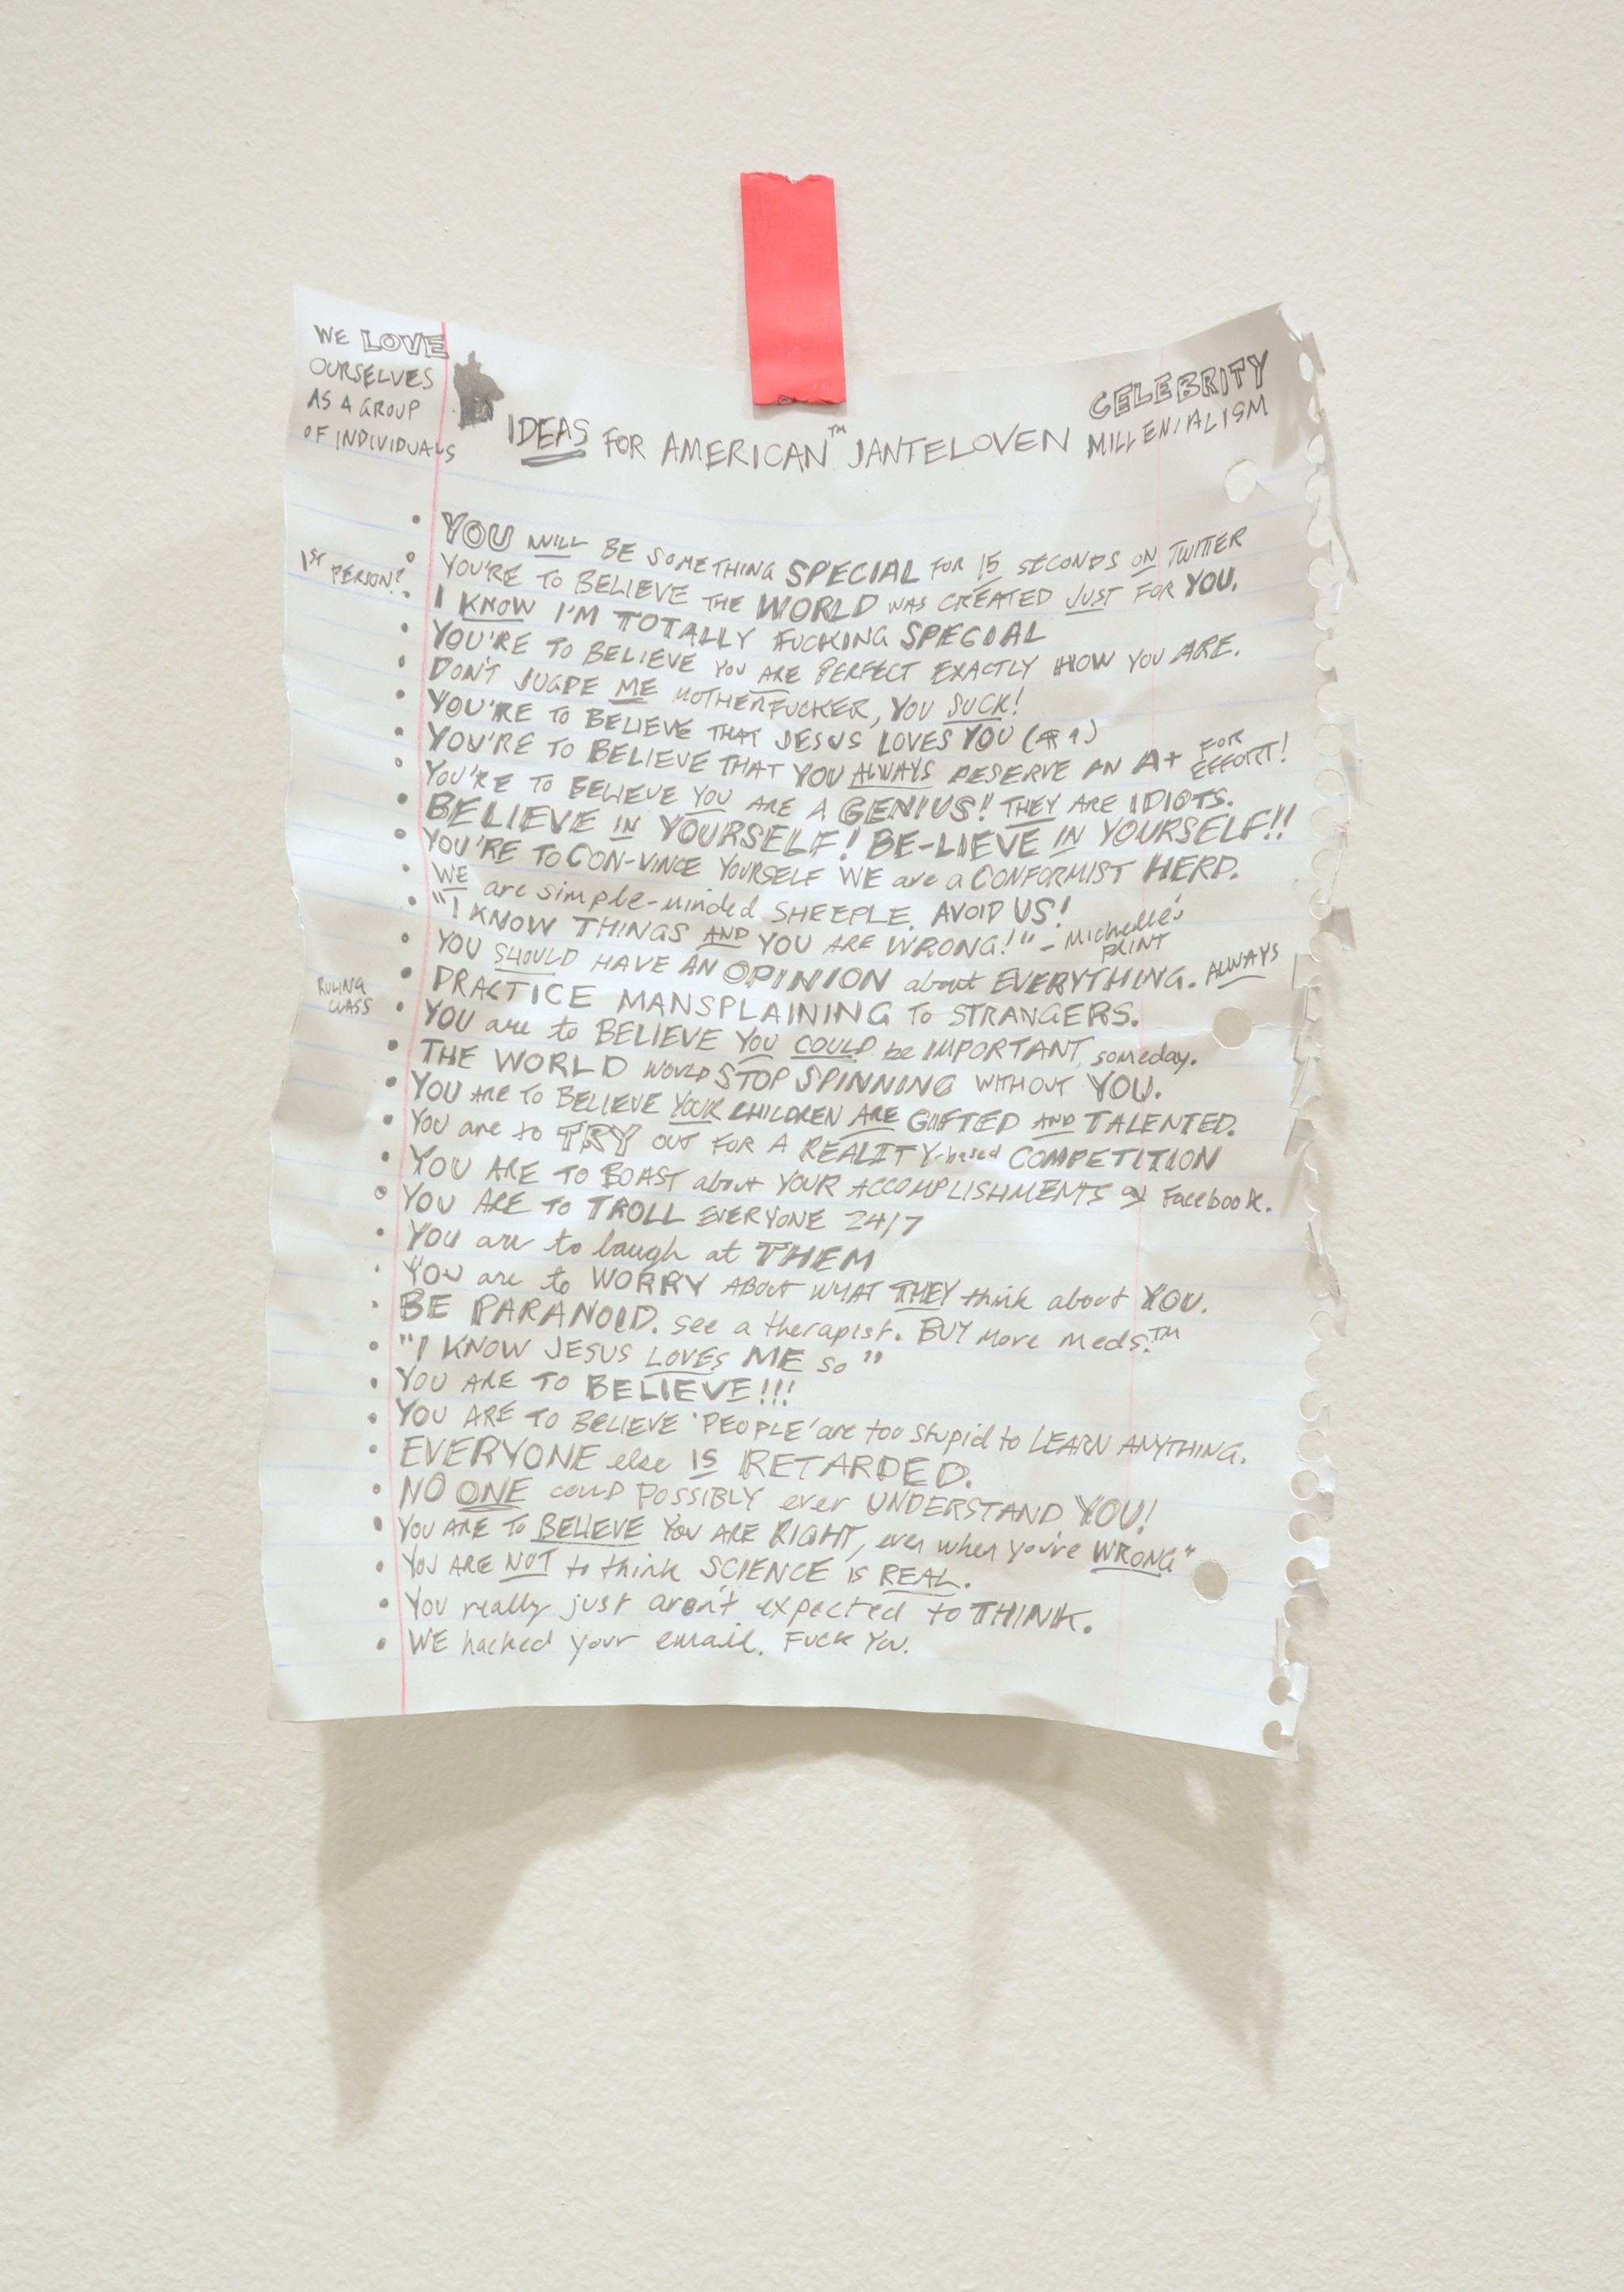 WE LOVE
OURSELVES
AS A GROUP
OF INDIVIDUALS
CELEBRITY
MILLENIALISM
IDEAS FOR AMERICAN™ JANTELOVEN
• YOU WILL BE SOMETHING SPECIAL FOR 15 SECONDS ON TWITTER
• YOU'RE TO BELIEVE THE WORLD WAS CREATED JUST FOR YOU.
1ST PERSON?
• I KNOW I'M TOTALLY FUCKING SPECIAL
• YOU'RE TO BELIEVE YOU ARE PERFECT EXACTLY HOW YOU ARE.
• DON'T JUGDE ME MOTHERFUCKER, YOU SUCK!
• YOU'RE TO BELIEVE THAT JESUS LOVES YOU (#1)
• YOU'RE TO BELIEVE THAT YOU ALWAYS DESERVE AN A+ FOR EFFORT!
• YOU'RE TO BELIEVE YOU ARE A GENIUS! THEY ARE IDIOTS.
• BELIEVE IN YOURSELF! BE-LIEVE IN YOURSELF!!
• YOU'RE TO CON-VINCE YOURSELF WE are a CONFORMIST HERD.
• WE are simple-minded SHEEPLE. AVOID US!
• "I KNOW THINGS AND YOU ARE WRONG!" - Michelle's PRINT
• YOU SHOULD HAVE AN OPINION about EVERYTHING. ALWAYS
• PRACTICE MANSPLAINING TO STRANGERS.
RULING
CLASS
• YOU are to BELIEVE YOU COULD be IMPORTANT, someday.
• THE WORLD WOULD STOP SPINNING WITHOUT YOU.
• YOU ARE TO BELIEVE YOUR CHILDREN ARE GIFTED AND TALENTED.
• YOU are to TRY OUT FOR A REALITY-based COMPETITION
• YOU ARE TO BOAST about YOUR ACCOMPLISHMENTS on Facebook.
• YOU ARE TO TROLL EVERYONE 24/7
• YOU are to laugh at THEM
• YOU are to WORRY ABOUT WHAT THEY think about YOU.
• BE PARANOID. see a therapist. BUY More Meds.™
• "I KNOW JESUS LOVES ME SO"
• YOU ARE TO BELIEVE!!!
• YOU ARE TO BELIEVE 'PEOPLE' are too stupid to LEARN ANYTHING.
• EVERYONE else IS RETARDED.
• NO ONE could POSSIBLY ever UNDERSTAND YOU!
• YOU ARE TO BELIEVE YOU ARE RIGHT, even when you're WRONG"
• YOU ARE NOT to think SCIENCE IS REAL.
• YOU really just aren't expected to THINK.
• WE hacked your email. FUCK YOU.